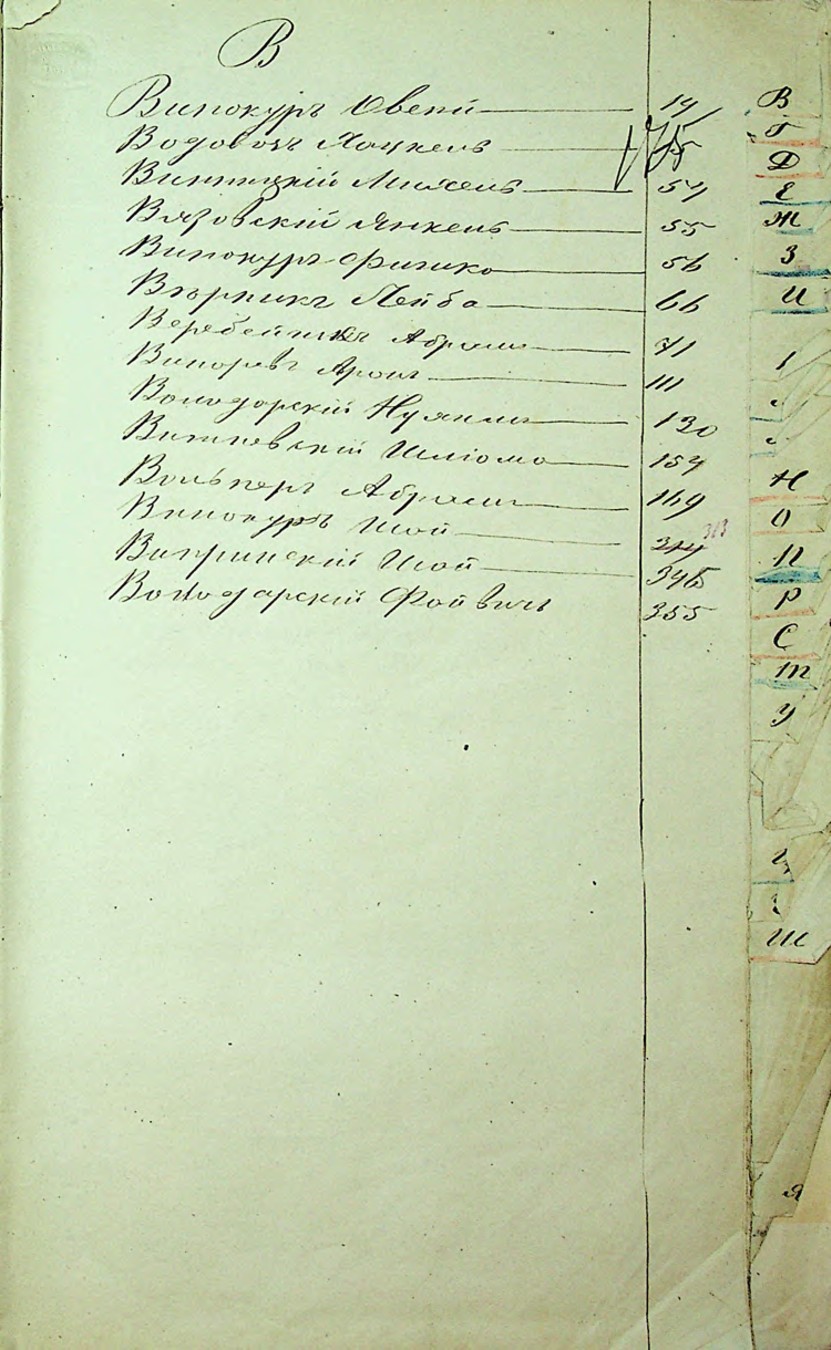 В
Винокуръ Овсей 19
Водовозъ Хацкель 15
Винницкій Михель 54
Вязовскій Янкель 55
Винокуръ Фишко 56
Вѣрникъ Лейба 66
Веребейчикъ Абрамъ 71
Аронъ 111
Володарскій Нухимъ 130
Витковскій Шлiома 154
Вольперъ Абрамъ 169
Винокуръ Шой 314 313
Шой 346
Володарскій Фойвишъ 355
В
Г
Д
Е
Ж
З
И
І
Н
О
П
Р
С
Т
У
Ш
Я